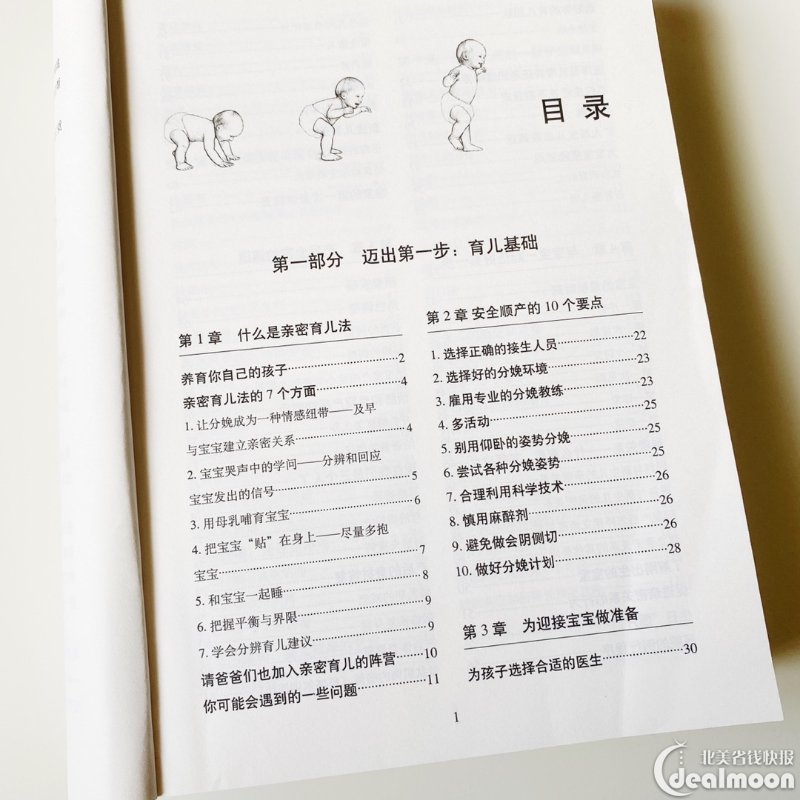 目录
第一部分 迈出第一步：育儿基础
第1章 什么是亲密育儿法
养育你自己的孩子……………………2
亲密育儿法的7个方面………………4
1. 让分娩成为一种情感纽带——及早
与宝宝建立亲密关系…………………4
2. 宝宝哭声中的学问——分辨和回应
宝宝发出的信号………………………5
3. 用母乳哺育宝宝……………………6
4. 把宝宝“贴”在身上——尽量多抱
宝宝……………………………………7
5. 和宝宝一起睡………………………8
6. 把握平衡与界限……………………9
7. 学会分辨育儿建议…………………9
请爸爸们也加入亲密育儿的阵营……10
你可能会遇到的一些问题……………11
第2章 安全顺产的10个要点
1. 选择正确的接生人员………………22
2. 选择好的分娩环境…………………23
3. 雇用专业的分娩教练………………23
4. 多活动………………………………25
5. 别用仰卧的姿势分娩………………25
6. 尝试各种分娩姿势…………………25
7. 合理利用科学技术…………………26
8. 慎用麻醉剂…………………………26
9. 避免做会阴侧切……………………26
10. 做好分娩计划……………………28
第3章 为迎接宝宝做准备
为孩子选择合适的医生………………30
1
北美省钱快报
dealmoon